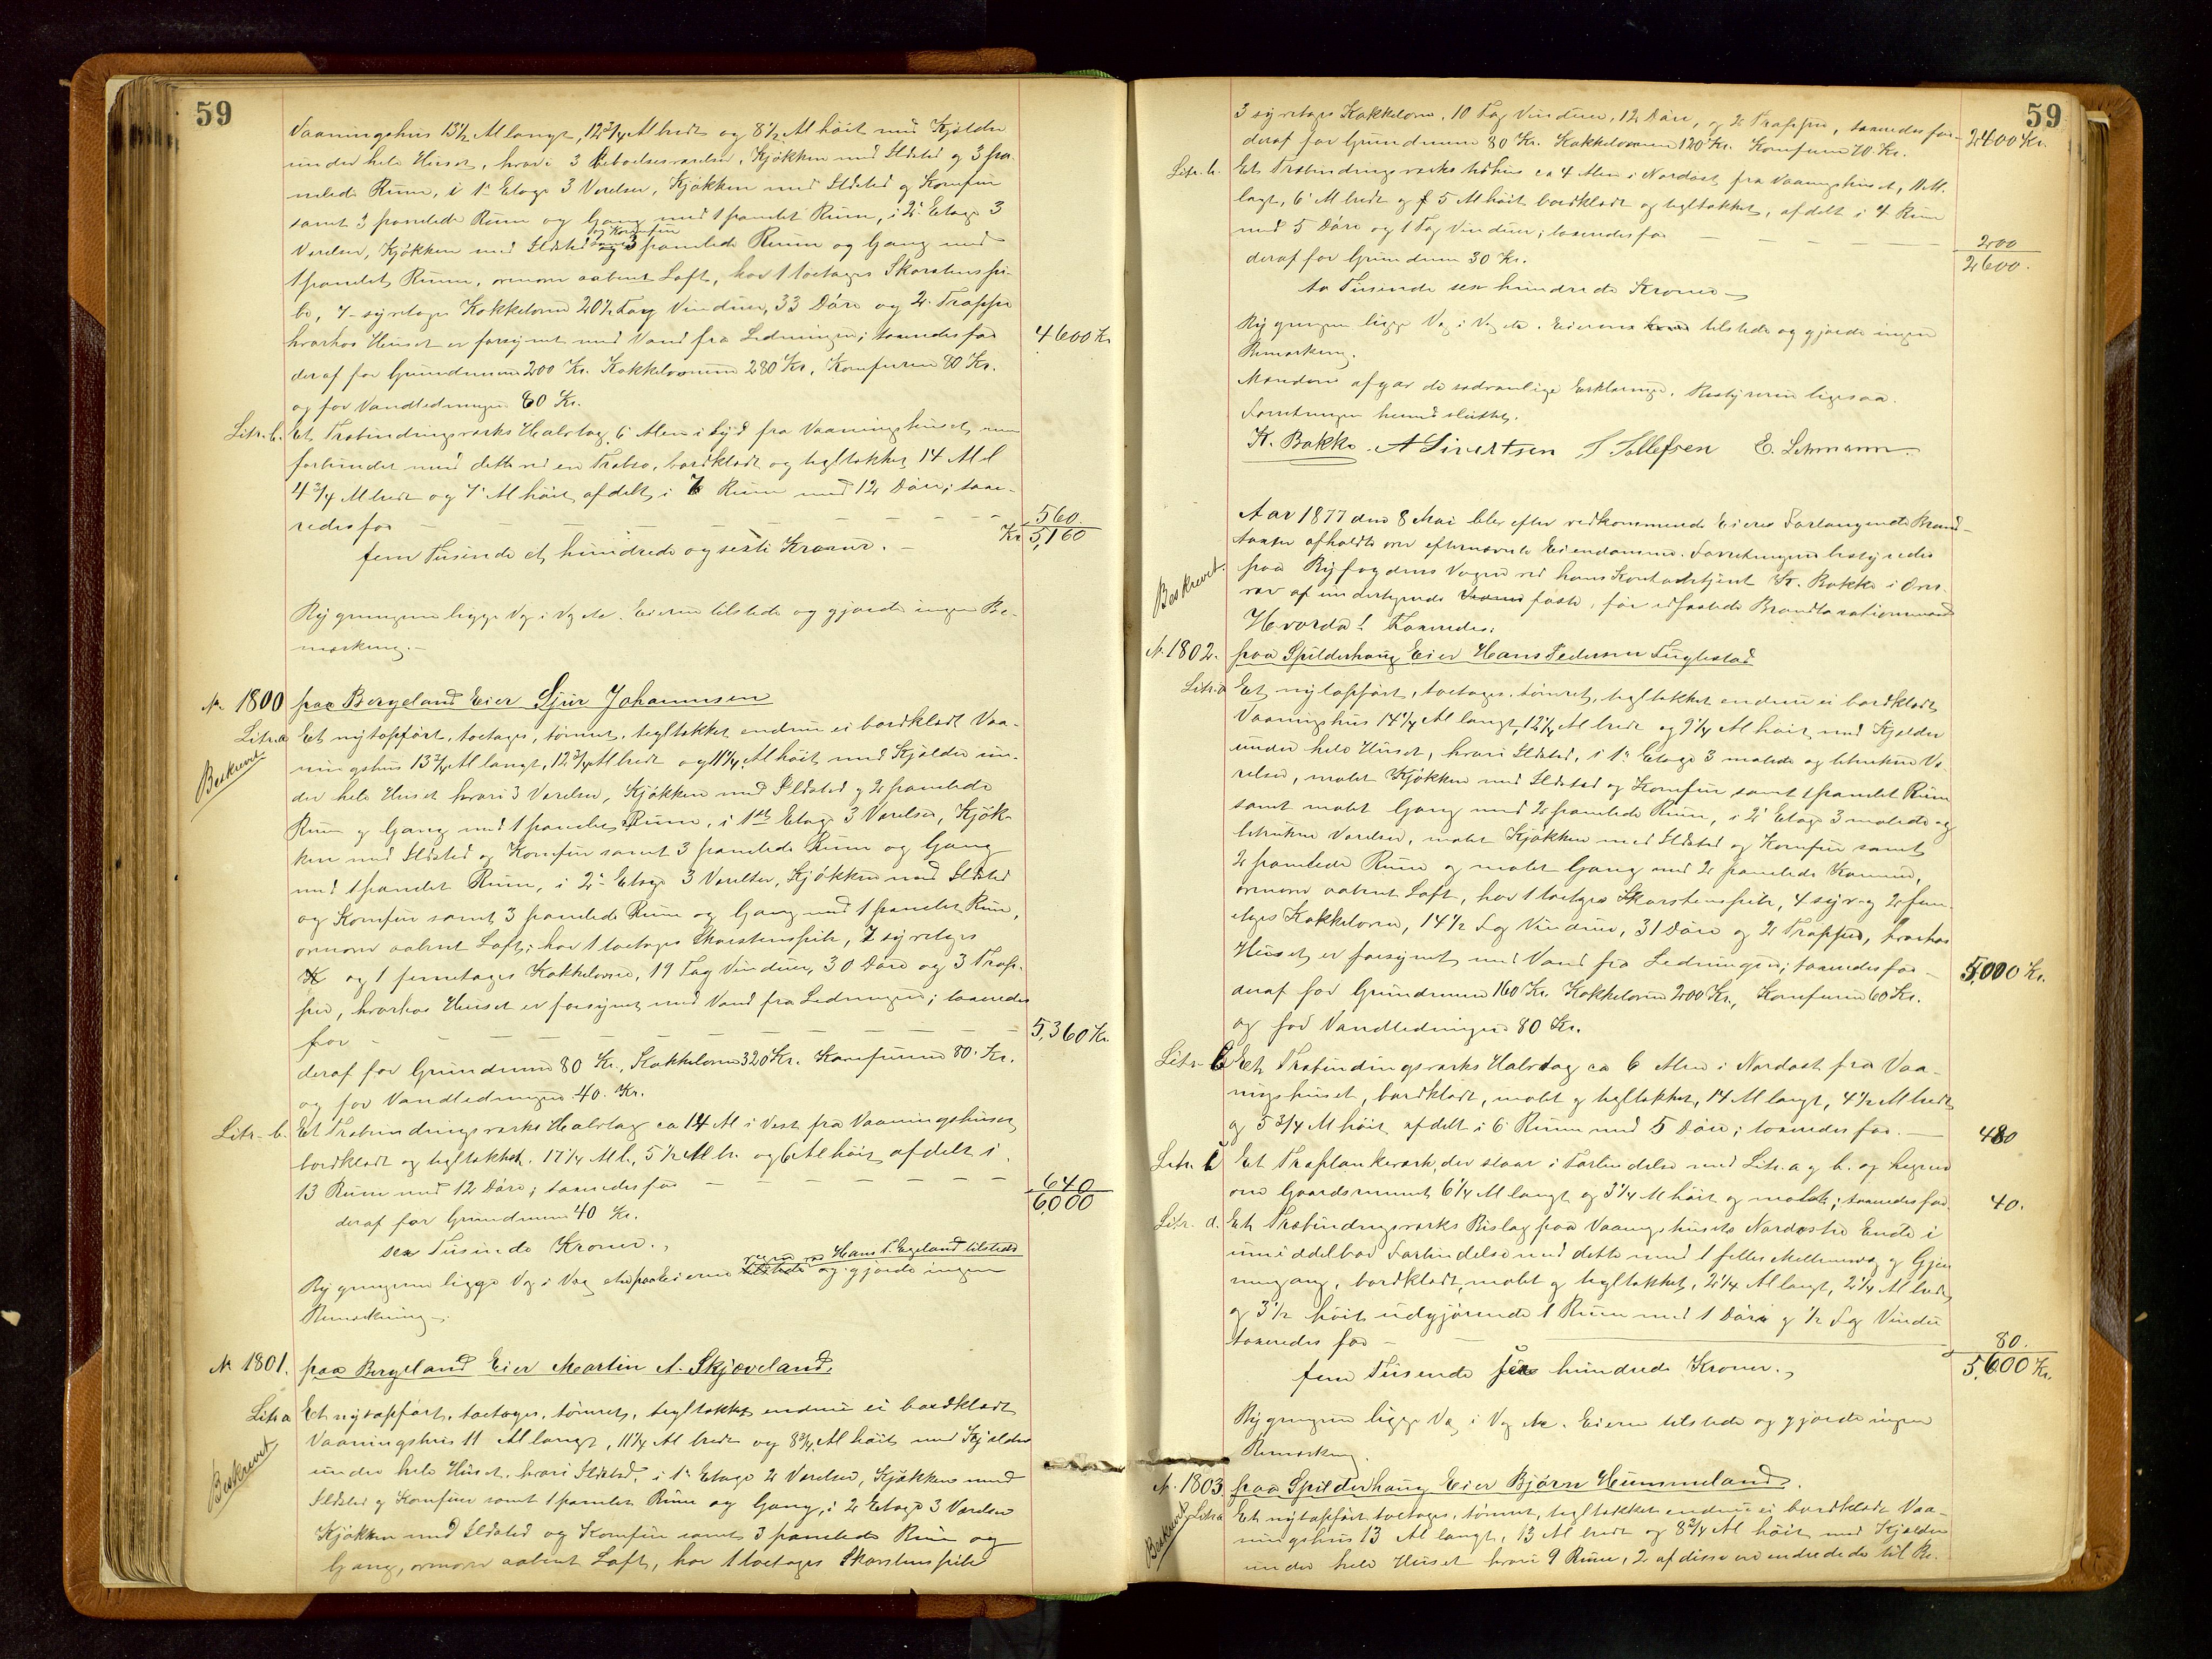 59
Vaaningshus 13½ Al langt, 12¾ Al bredt og 8½ Al höit med Kjelder
under hele Huset, hvori 3 Beboelsesværelser, Kjökken med Ildsted og 3 pa-
nelede Rum, i 1ste Etage 3 Værelser, Kjökken med Ildsted og Komfur
samt 3 panelede Rum og Gang med 1 panelet Rum, i 2den Etage 3
og Komfur
Værelser, Kjökken med Ildsted samt 3 panelede Rum og Gang med
1 panelet Rum, ovenover aabent Loft, har 1 toetages Skorstenspi-
be, 7 syvetages Kakkelovne 20½ Fag Vinduer, 33 Döre og 2 Trapper
hvorhos Huset er forsynet med Vand fra Ledningen; taxeredes for
4600 Kr
deraf for Grundmuren 200 Kr. Kakkelovnene 280 Kr, Komfurene 80 Kr.
og for Vandledningen 80 Kr.
Litr. b. Et Træbindingsværks Halvtag 6 Alen i Syd fra Vaaningshuset, men
forbundet med dette ved en Træbro, bordklædt og tegltækket 14 Al l
4¾ Al bredt og 7 Al höit, afdelt i 6 Rum med 12 Döre; taxe-
redes for
560.
Kr 5,160
fem Tusinde et hundrede og sexti Kroner.
Bygningerne ligge Væg i Væg etc. Eieren tilstede og gjorde ingen Be-
mærkning.
№ 1800 paa Bergeland Eier Sjur Johannesen
Litr. a Et nyopfört, toetages, tömret, tegltækket endnu ei bordklædt Vaa-
Beskrevet
ningshus 13¾ Al langt, 12¾ Al bredt og 11¼ Al höit med Kjelder un-
der hele Huset hvori 3 Værelser, Kjökken med Ildsted og 2 panelede
Rum og Gang med 1 panelet Rum, i 1ste Etage 3 Værelser, Kjök-
ken med Ildsted og Komfur samt 3 panelede Rum og Gang
med 1 panelet Rum, i 2den Etage 3 Værelser, Kjökken med Ildsted
og Komfur samt 3 panelede Rum og Gang med 1 panelet Rum,
ovenover aabent Loft; har 1 toetages Skorstenspibe, 7 syvetages
og 1 femetages Kakkelovne, 19 Fag Vinduer, 30 Döre og 3 Trap-
per, hvorhos Huset er forsynet med Vand fra Ledningen; taxeredes
for
5,360 Kr.
deraf for Grundmuren 80 Kr., Kakkelovne 320 Kr. Komfurene 80 Kr.
og for Vandledningen 40 Kr.
Litr. b. Et Træbindingsværks Halvtag ca 14 Al i Vest fra Vaaningshuset
bordklædt og tegltækket. 17¼ Al l., 5½ Al br. og 6 Al höit afdelt i
13 Rum med 12 Döre; taxeredes for
640
6,000
deraf for Grundmuren 40 Kr.
sex Tusinde Kroner.
ved Hans T. Egeland tilstede
Bygningerne ligge Væg i Væg etc paa Eierens og gjorde ingen
Bemærkning.
№ 1801. paa Bergeland Eier Martin A. Skjæveland.
Litr a Et nyopfört, toetages, tömret, tegltækket endnu ei bordklædt
Beskrevet
Vaaningshus 11 Al langt, 11¼ Al bredt og 8¾ Al höit med Kjelder
under hele Huset, hvori Ildsted, i 1ste Etage 2 Værelser, Kjökken med
Ildsted og Komfur samt 1 panelet Rum og Gang, i 2 Etage 3 Værelser
Kjökken med Ildsted og Komfur samt 3 panelede Rum og
Gang, ovenover aabent Loft, har 1 toetages Skorstenspibe
59
3 syvetages Kakkelovne, 10 Fag Vinduer, 12 Döre, og 2 Trapper, taxeredes for
2400 Kr.
deraf for Grundmuren 80 Kr. Kakkelovnene 120 Kr. Komfurene 70 Kr.
Litr. b. Et Træbindingsværks Udhus ca 4 Alen i Nordöst fra Vaaningshuset, 11 Al.
langt, 6 Al bredt og 5 Al höit bordklædt og tegltækket, afdelt i 4 Rum
med 5 Döre og 1 Fag Vinduer; taxeredes for
200
deraf for Grundmuren 30 Kr.
2600.
to Tusinde sex hundrede Kroner
Bygningen ligge Væg i Væg etc. Eieren tilstede og gjorde ingen
Bemærkning.
Mændene afgav de sædvanlige Erklæringer. Bestyreren ligesaa.
Forretningen hermed sluttet.
K. Bakke. A Sivertsen S Tollefsen E. Lehmann.
Aar 1877 den 8 Mai blev efter vedkommende Eieres Forlangende Brand-
taxter afholdte over efternævnte Eiendomme. Forretningen bestyredes
Beskrevet.
paa Byfogdens Vegne ved hans Kontorbetjent K. Bakke i Over-
vær af undertegnede faste, för edfæstede Brandtaxationsmænd
Hvorda! Taxeredes:
№ 1802. paa Spilderhaug Eier Hans Pedersen Fuglestad
Litr. a Et nyopfört, toetages, tömret, tegltækket endnu ei bordklædt
Vaaningshus 14¼ Al langt, 12¼ Al bredt og 9¼ Al höit med Kjelder
under hele Huset, hvori Ildsted, i 1ste Etage 3 malede og betrukne Væ-
relser, malet Kjökken med Ildsted og Komfur samt 1 panelet Rum
samt malet Gang med 2 panelede Rum, i 2 Etage 3 malede og
betrukne Værelser, malet Kjökken med Ildsted og Komfur samt
2 panelede Rum og malet Gang med 2 panelede Kammer,
ovenover aabent Loft, har 1 toetages Skorstenspibe, 4 syv- og 2 fem-
etages Kakkelovne, 14½ Fag Vinduer, 31 Döre og 2 Trapper, hvorhos
Huset er forsynet med Vand fra Ledningen; taxeredes for
5,000 Kr.
deraf for Grundmuren 160 Kr. Kakkelovne 200 Kr., Komfurene 60 Kr.
og for Vandledningen 80 Kr.
Litr. b Et Træbindingsværks Halvtag ca 6 Alen i Nordöst fra Vaa-
ningshuset, bordklædt, malet og tegltækket, 14 Al langt, 4½ Al bredt
og 5¾ Al höit afdelt i 6 Rum med 5 Döre; taxeredes for.
480
Litr. c Et Træplankeværk, der staar i Forbindelse med Litr. a og b. og hegner
om Gaardsrummet 6¼ Al langt og 3¼ Al höit og malet; taxeredes for
40.
Litr. d. Et Træbindingsværks Bislag paa Vaaningshusets Nordöstre Ende i
umiddelbar Forbindelse med dette med 1 felles Mellemvæg og Gjen-
nemgang, bordklædt, malet og tegltækket, 2¼ Al langt, 2¼ Al bredt
og 3½ höit udgjörende 1 Rum med 1 Dör og ½ Fag Vindu
taxeredes for
80.
5,600 Kr.
fem Tusende sex hundrede Kroner.
Bygningerne ligge Væg i Væg etc. Eieren tilstede og gjorde ingen
Bemærkning.
№ 1803. paa Spilderhaug Eier Björn Hummeland.
Beskrevet
Litr a Et nyopfört toetages, tömret, tegltækket endnu ei bordklædt Vaa-
ningshus 13 Al langt, 13 Al bredt og 8¾ Al höit med Kjelder
under hele Huset hvori 9 Rum, 2 af disse ere indredede til Be-